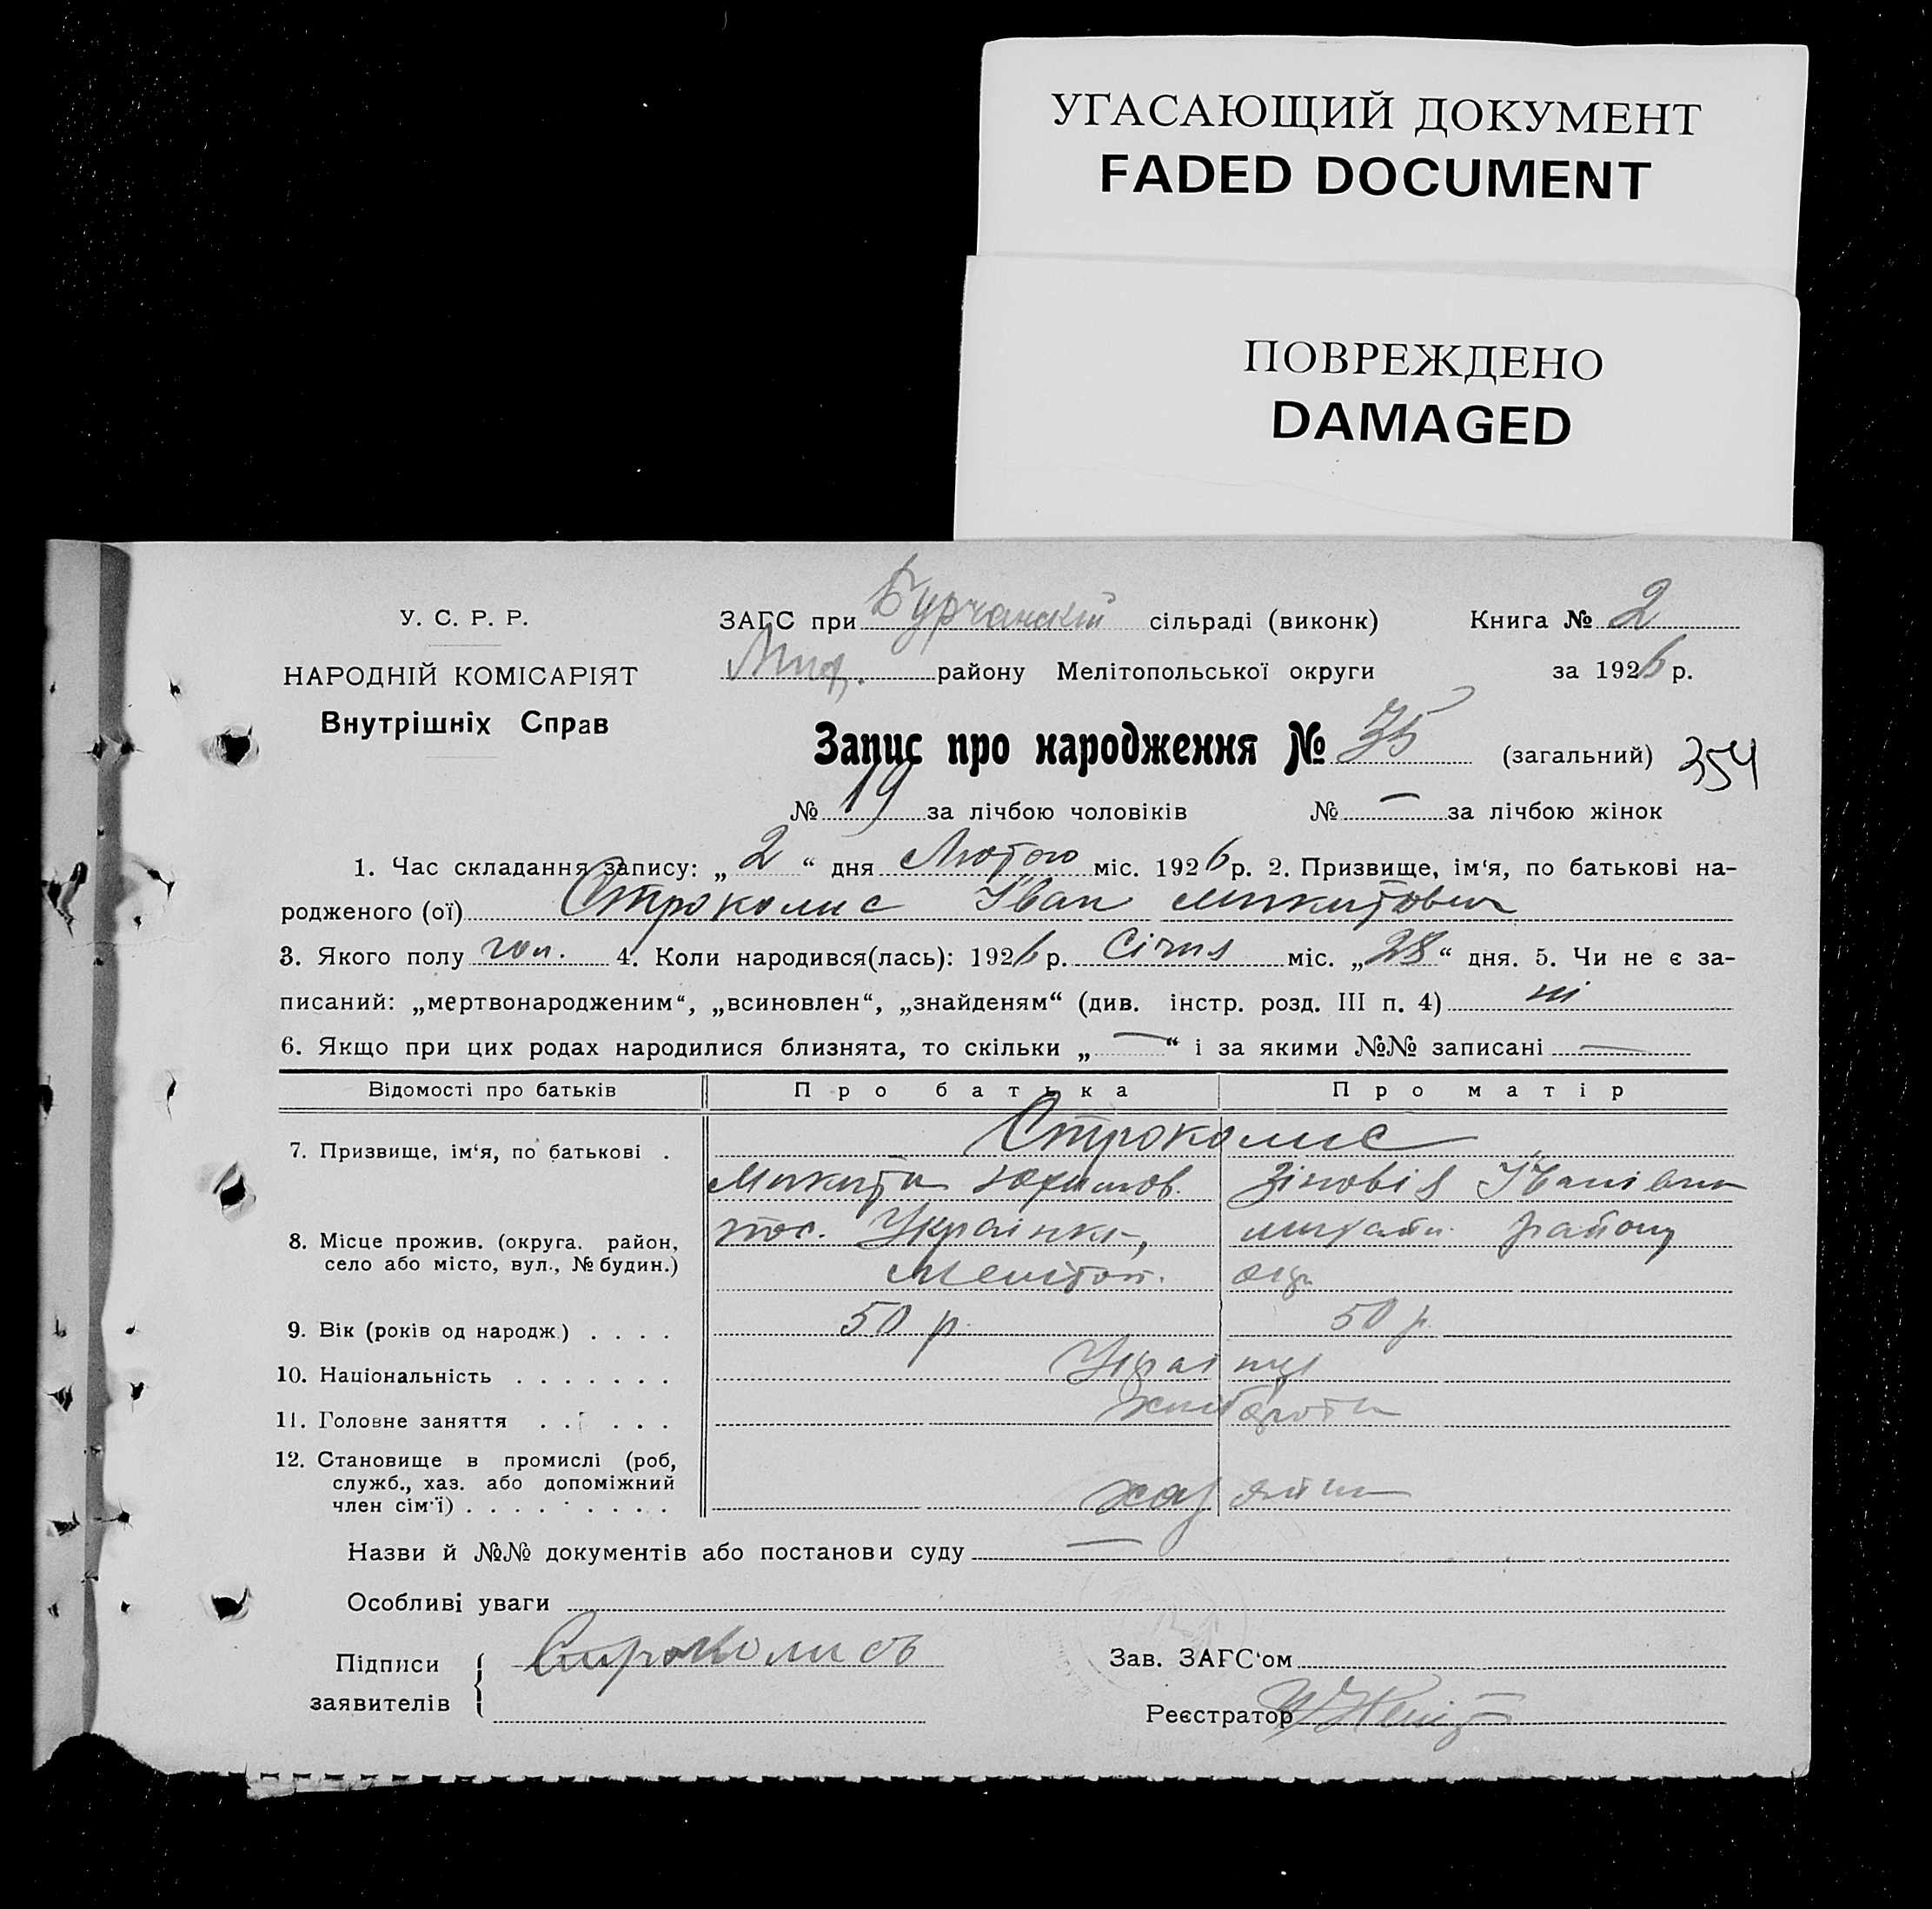 УГАСАЮЩИЙ ДОКУМЕНТ
FADED DOCUMENT
ПОВРЕЖДЕНО
DAMAGED
У. С. Р. Р.
НАРОДНІЙ КОМІСАРІЯТ
Внутрішніх Справ
ЗАГС при Бурчанскій сільраді (виконк) Книга № 2
Мих. району Мелітопольської округи за 1926 р.
Запис про народження № 35 (загальний) 354
№ 19 за лічбою чоловіків № — за лічбою жінок
1. Час складання запису: „ 2 “ дня Лютого міс. 1926 р. 2. Призвище, ім‘я, по батькові на-
родженого (ої) Строколис Іван Микитович
3. Якого полу чол. 4. Коли народився(лась): 1926 р. Січня міс. „ 28 “ дня. 5. Чи не є за-
писаний: „мертвонародженим“, „всиновлен“, „знайденям“ (див. інстр. розд. III п. 4) ні
6. Якщо при цих родах народилися близнята, то скільки „ — “ і за якими №№ записані —
Відомості про батьків Про батька Про матір
7. Призвище, ім‘я, по батькові . Строколис
Микита Юхимов. Зіновія Іванівна
8. Місце прожив. (округа. район, село або місто, вул., № будин.)
пос. Українка, михайл. району
Мелітоп. окр.
9. Вік (років од народж) . . . . 50 р. 50 р.
10. Національність . . . . . . . Українці
11. Головне заняття . . . . . . хлібороби
12. Становище в промислі (роб,
служб., хаз. або допоміжний
член сім‘ї) . . . . . . . . . хазяйни
Назви й №№ документів або постанови суду —
Особливі уваги
Підписи
заявителів
Строколисъ
Зав. ЗАГС‘ом
Реєстратор